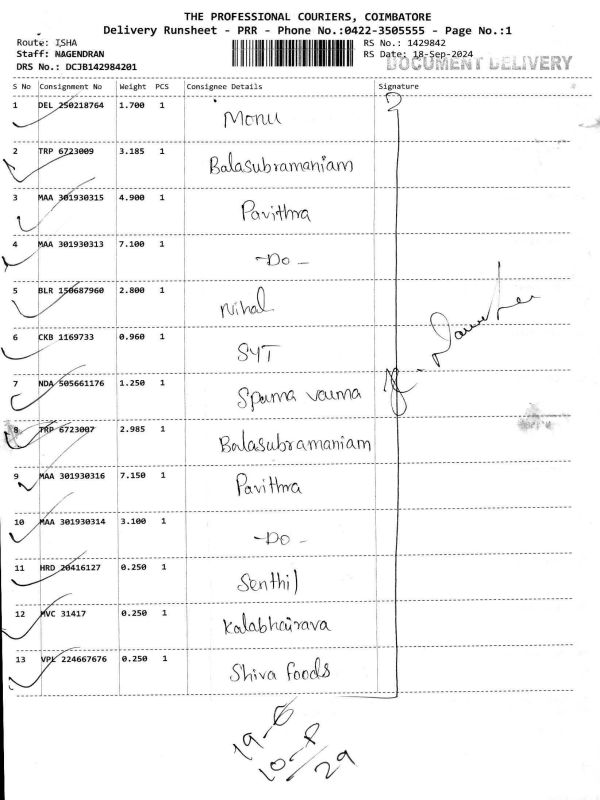 THE PROFESSIONAL COURIERS, COIMBATORE
Delivery Runsheet - PRR - Phone No.:0422-3505555 - Page No.:1
Route: ISHA RS No.: 1429842
Staff: NAGENDRAN RS Date: 18-Sep-2024
DOCUMENT DELIVERY
DRS No.: DCJB142984201
S No Consignment No Weight PCS Consignee Details Signature
1 DEL 250218764 1.700 1 Monu
2 TRP 6723009 3.185 1 Balasubramaniam
3 MAA 301930315 4.900 1 Pavithra
4 MAA 301930313 7.100 1 -Do-
5 BLR 150687960 2.800 1 Nihal
6 CKB 1169733 0.960 1 SYT
7 NDA 505661176 1.250 1
8 TRP 6723007 2.985 1 Balasubramaniam
9 MAA 301930316 7.150 1 Pavithra
10 MAA 301930314 3.100 1 -Do-
11 HRD 20416127 0.250 1 Senthil
12 MVC 31417 0.250 1 Kalabhairava
13 VPL 224667676 0.250 1 Shiva foods
29